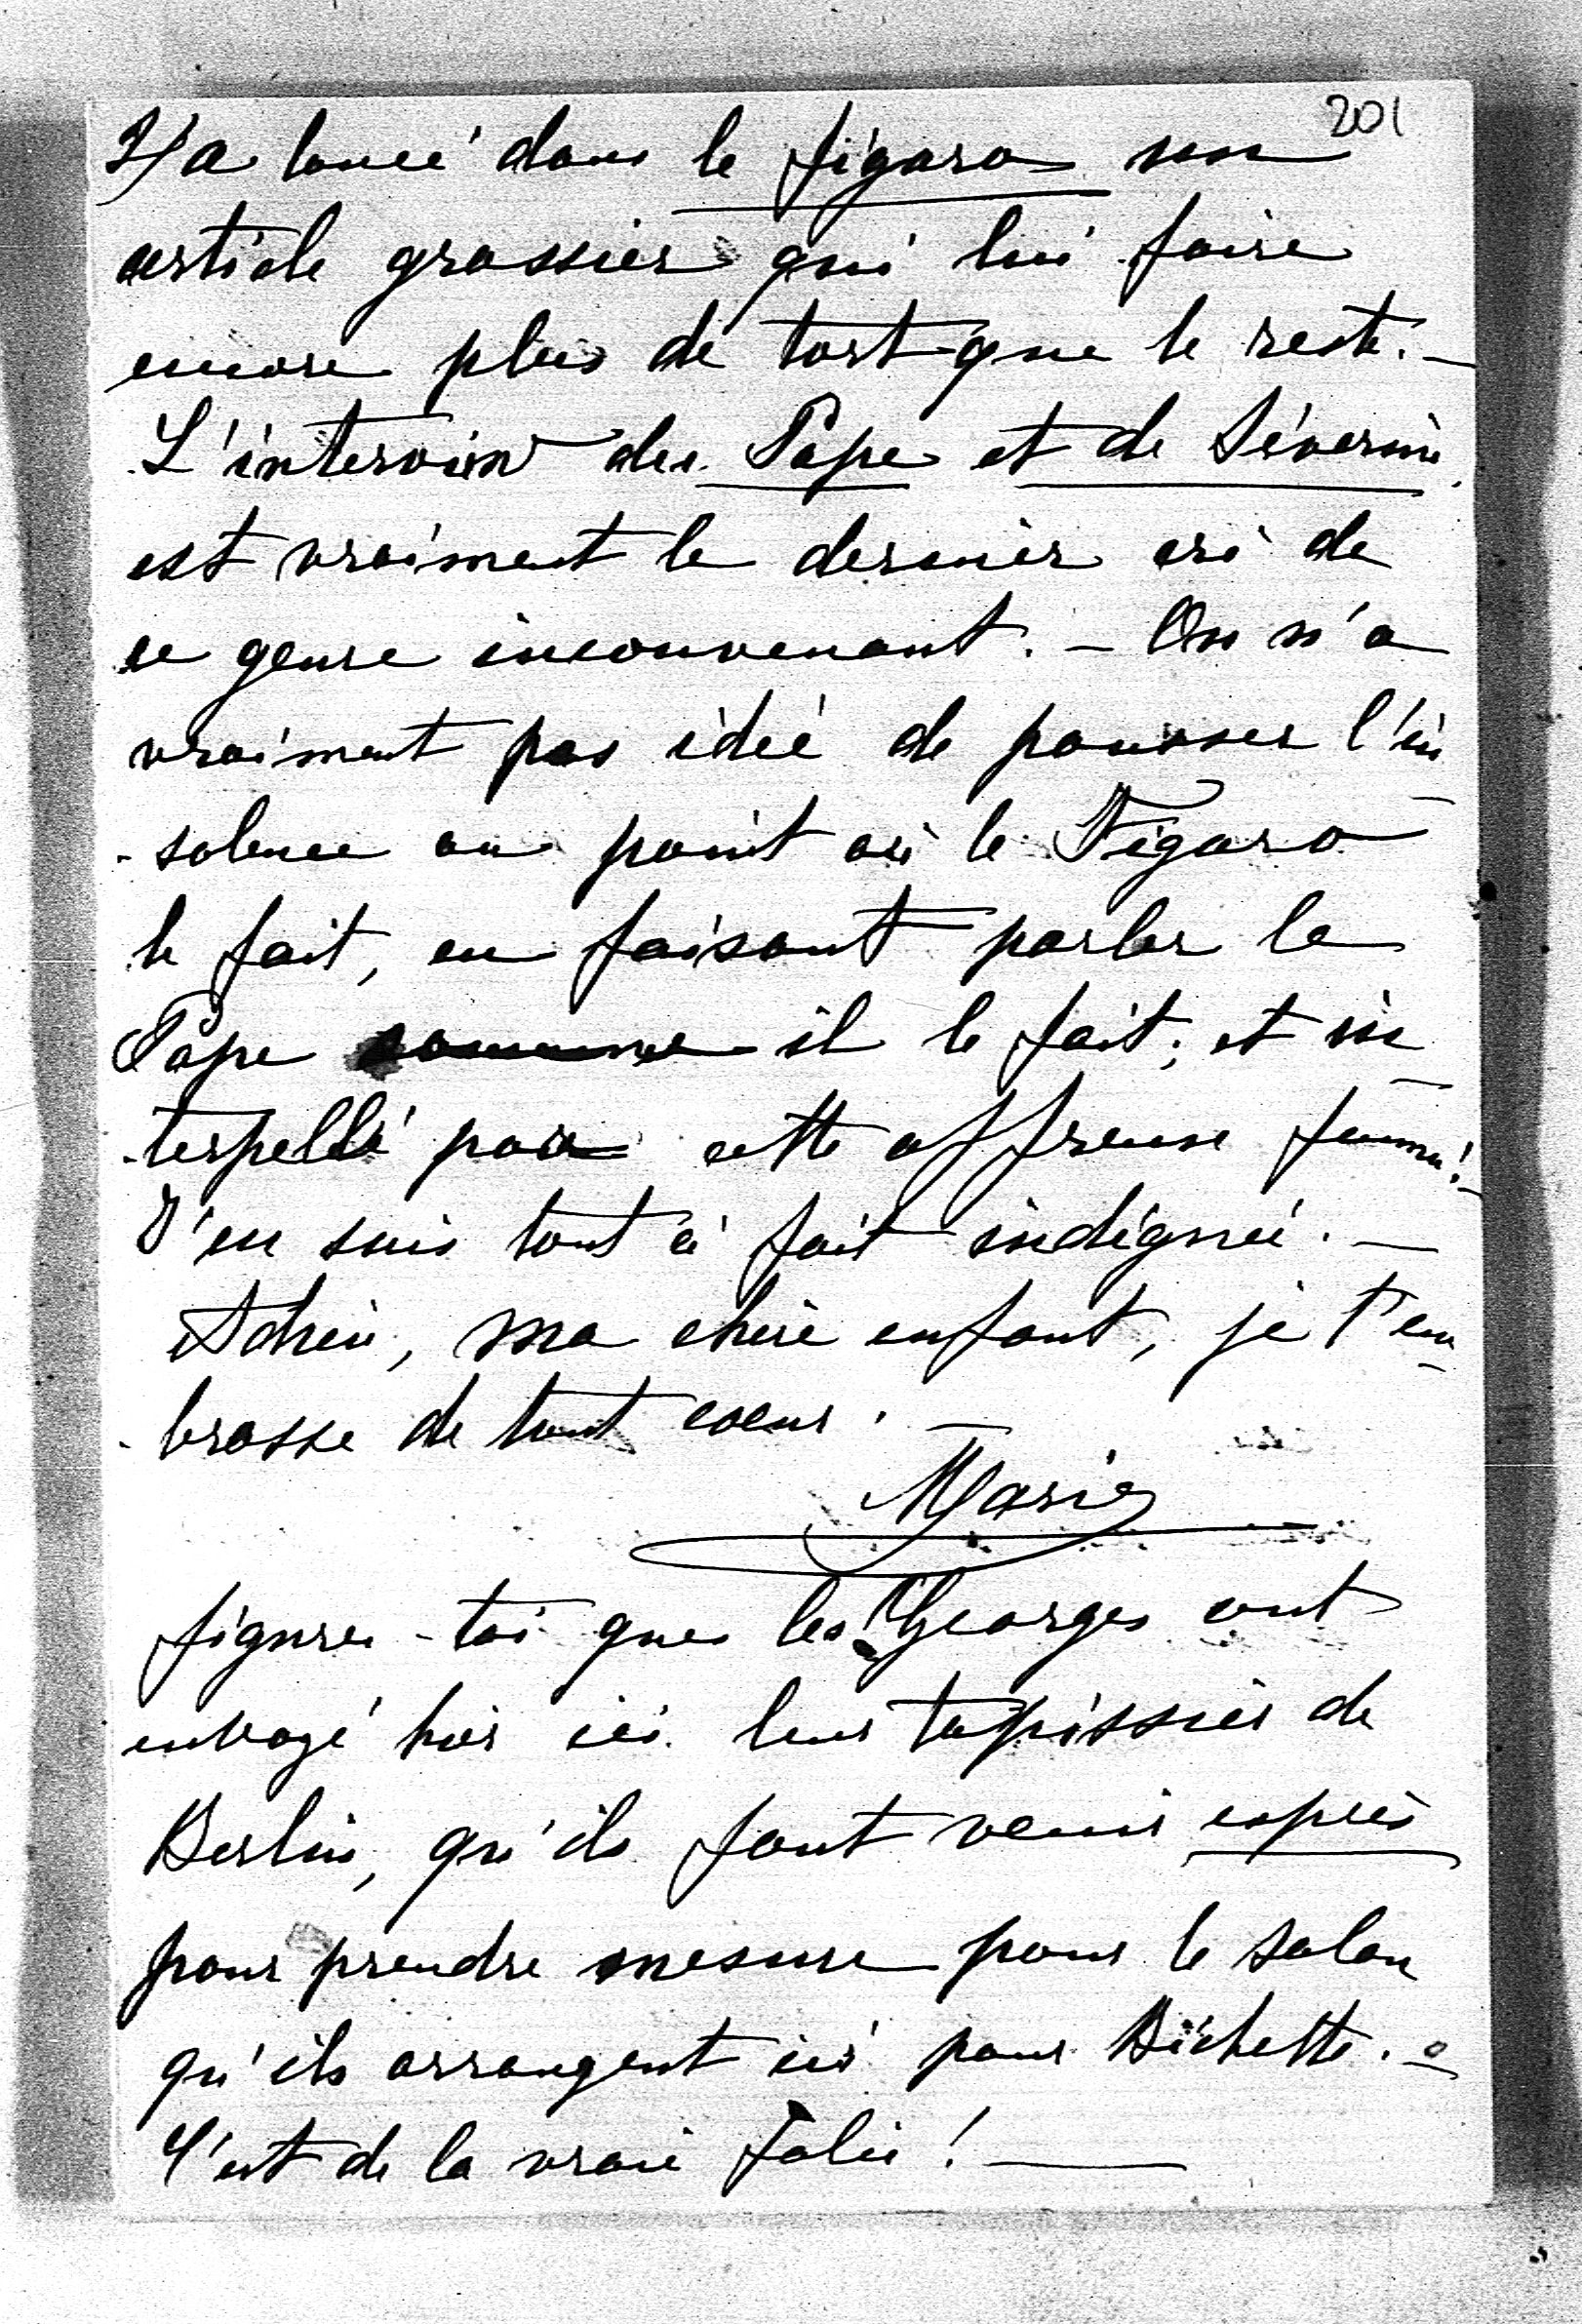 201
Il a lancé dans le figaro un
article grossier qui lui faire
encore plus de tort que le reste. –
L'interview du Pape et de Séverine
est vraiment le dernier cri de
ce genre inconvenant. – On n'a
vraiment pas idée de pousser l'in
-solence au point où le Figaro
le fait, en faisant parler le
Pape comme il le fait; et in
-terpellé par cette affreuse femme! –
J'en suis tout à fait indignée. –
Adieu, ma chère enfant, je t'em
-brasse de tout coeur. –
Marie
figures-toi que les Georges ont
envoyé hier ici leur tapissier de
Berlin, qu'ils font venir exprès
pour prendre mesure pour le salon
qu'ils arrangent ici pour Bichette. –
C'est de la vraie folie! –